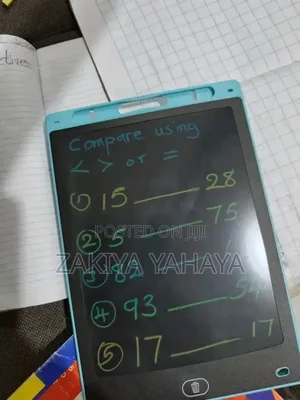 tives
Compare using
< > or =
① 15 ____ 28
② 5 ____ 75
POSTED ON
ZAKIYA YAHAYA
③ 82
④ 93 ____ 54
⑤ 17 ____ 17